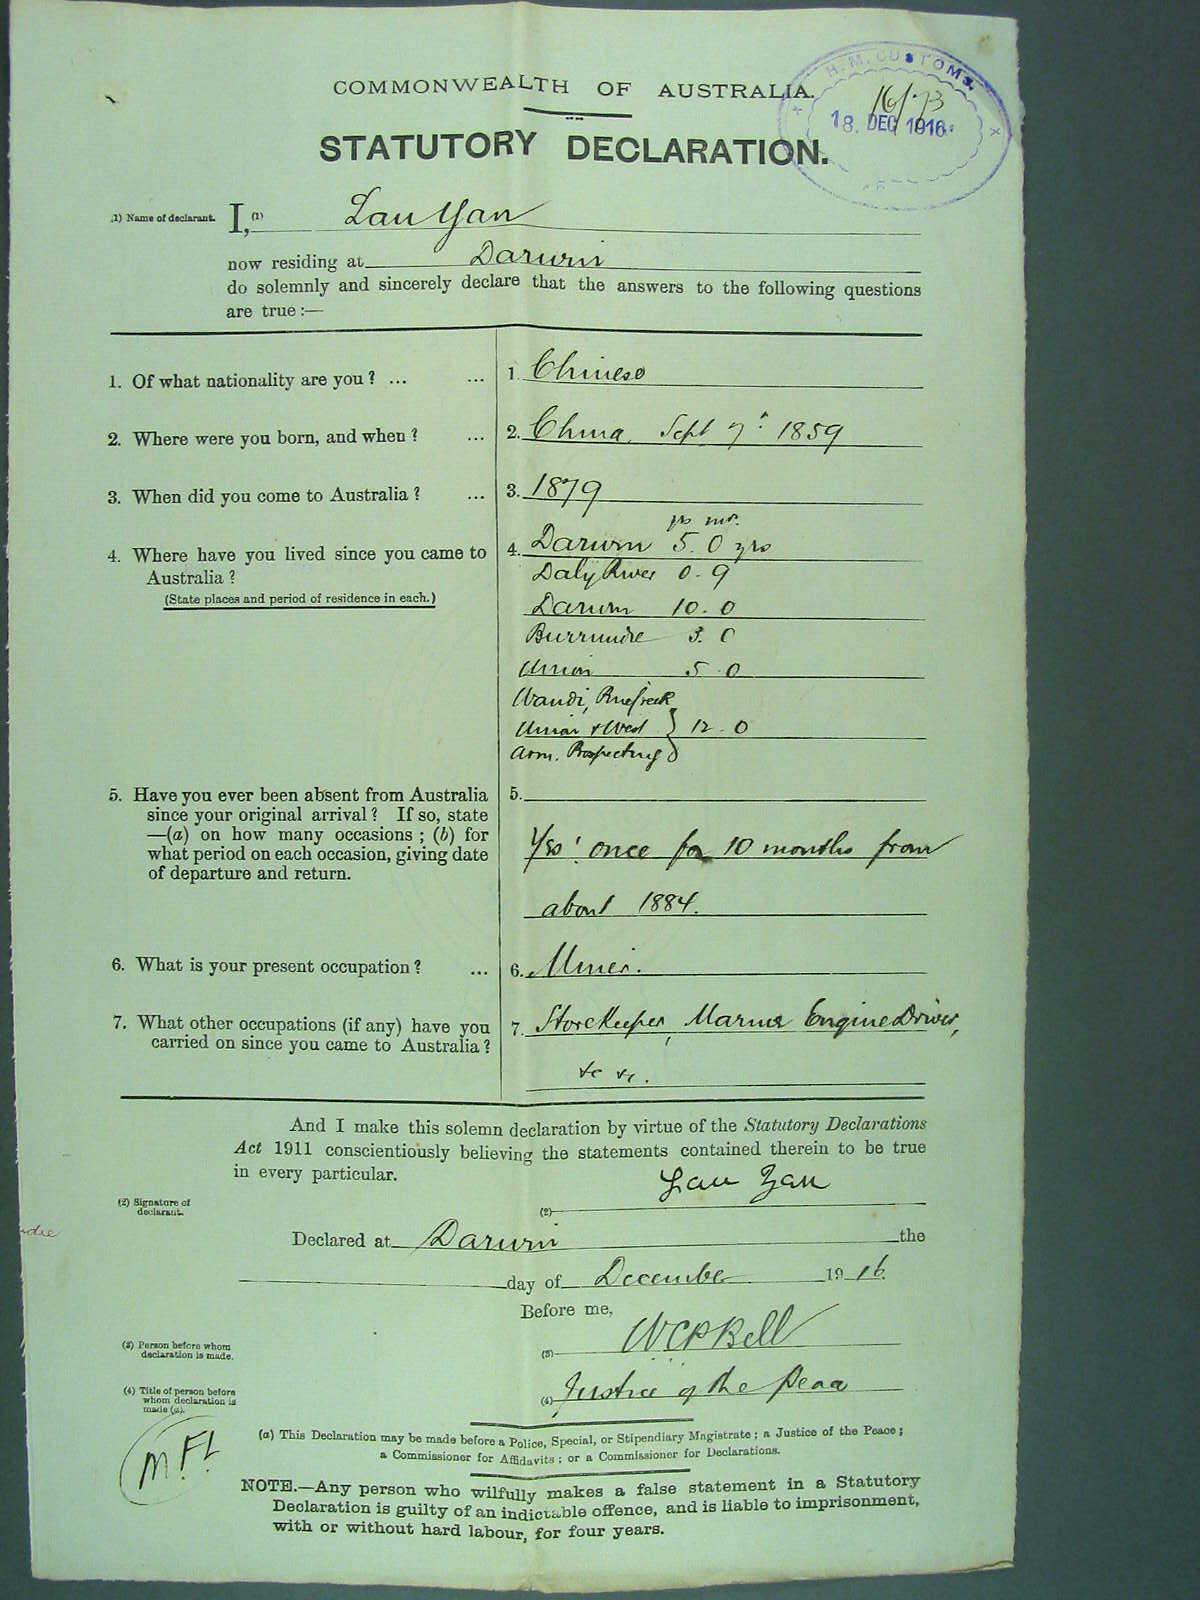 COMMONWEALTH OF AUSTRALIA.
H. M. CUSTOMS.
16/73
18. DEC 1916
STATUTORY DECLARATION.
(1) Name of declarant. I, (1) Lau Yan
now residing at Darwin
do solemnly and sincerely declare that the answers to the following questions
are true :—
1. Of what nationality are you ? ... ... 1. Chinese
2. Where were you born, and when ? ... 2. China, Sept 7th 1859
3. When did you come to Australia ? ... 3. 1879
yrs ms.
4. Where have you lived since you came to 4. Darwin 5. 0 yrs
Australia ? Daly River 0. 9
(State places and period of residence in each.) Darwin 10. 0
Burrundie 3. 0
Union 5. 0
Wandi, Pine Creek
Union & West } 12. 0
Arm. Prospecting
5. Have you ever been absent from Australia 5.
since your original arrival ? If so, state
—(a) on how many occasions ; (b) for Yes! once for 10 months from
what period on each occasion, giving date
of departure and return.
about 1884.
6. What is your present occupation ? ... 6. Miner.
7. What other occupations (if any) have you 7. Storekeeper, Marine Engine Driver,
carried on since you came to Australia ?
&c &c.
And I make this solemn declaration by virtue of the Statutory Declarations
Act 1911 conscientiously believing the statements contained therein to be true
in every particular.
(2) Signature of declarant. (2) Lau Yan
Declared at Darwin the
day of December 1916.
Before me,
(3) Person before whom declaration is made. (3) W C P Bell
(4) Title of person before whom declaration is made (a). (4) Justice of the Peace
(a) This Declaration may be made before a Police, Special, or Stipendiary Magistrate ; a Justice of the Peace ;
a Commissioner for Affidavits ; or a Commissioner for Declarations.
M.F.L
NOTE.—Any person who wilfully makes a false statement in a Statutory
Declaration is guilty of an indictable offence, and is liable to imprisonment,
with or without hard labour, for four years.